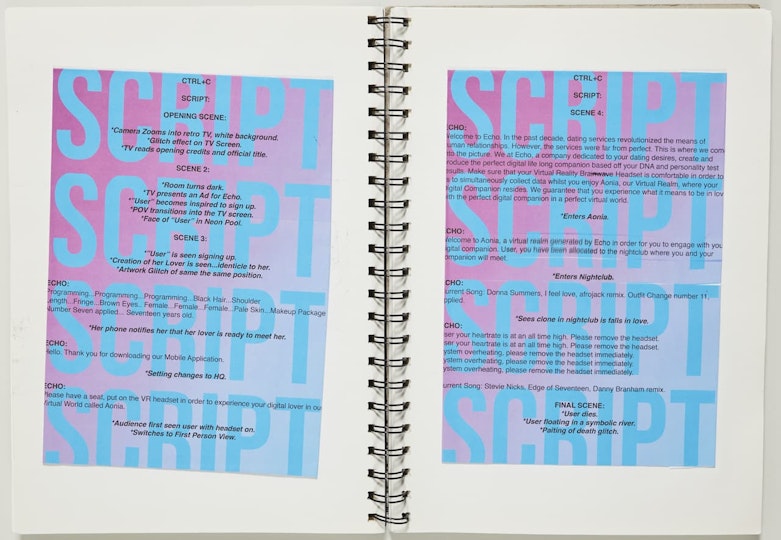 SCRIPT
SCRIPT
SCRIPT
SCRIPT
CTRL+C
SCRIPT:
OPENING SCENE:
*Camera Zooms into retro TV, white background.
*Glitch effect on TV Screen.
*TV reads opening credits and official title.
SCENE 2:
*Room turns dark.
*TV presents an Ad for Echo.
*"User" becomes inspired to sign up.
*POV transitions into the TV screen.
*Face of "User" in Neon Pool.
SCENE 3:
*"User" is seen signing up.
*Creation of her Lover is seen...identicle to her.
*Artwork Glitch of same the same position.
ECHO:
Programming...Programming...Programming...Black Hair...Shoulder
Length...Fringe...Brown Eyes...Female...Female...Female...Pale Skin...Makeup Package
Number Seven applied... Seventeen years old.
*Her phone notifies her that her lover is ready to meet her.
ECHO:
Hello. Thank you for downloading our Mobile Application.
*Setting changes to HQ.
ECHO:
Please have a seat, put on the VR headset in order to experience your digital lover in ou
Virtual World called Aonia.
*Audience first seen user with headset on.
*Switches to First Person View.
SCRIPT
SCRIPT
SCRIPT
SCRIPT
CTRL+C
SCRIPT:
SCENE 4:
ECHO:
Welcome to Echo. In the past decade, dating services revolutionized the means of
human relationships. However, the services were far from perfect. This is where we com
into the picture. We at Echo, a company dedicated to your dating desires, create and
produce the perfect digital life long companion based off your DNA and personality test
results. Make sure that your Virtual Reality Brainwave Headset is comfortable in order to
s to simultaneously collect data whilst you enjoy Aonia, our Virtual Realm, where your
digital Companion resides. We guarantee that you experience what it means to be in lov
with the perfect digital companion in a perfect virtual world.
*Enters Aonia.
ECHO:
Welcome to Aonia, a virtual realm generated by Echo in order for you to engage with you
digital companion. User, you have been allocated to the nightclub where you and your
companion will meet.
*Enters Nightclub.
ECHO:
urrent Song: Donna Summers, I feel love, afrojack remix. Outfit Change number 11,
pplied.
*Sees clone in nightclub is falls in love.
ECHO:
ser your heartrate is at an all time high. Please remove the headset.
ser your heartrate is at an all time high. Please remove the headset.
ystem overheating, please remove the headset immediately.
ystem overheating, please remove the headset immediately.
ystem overheating, please remove the headset immediately.
urrent Song: Stevie Nicks, Edge of Seventeen, Danny Branham remix.
FINAL SCENE:
*User dies.
*User floating in a symbolic river.
*Paiting of death glitch.